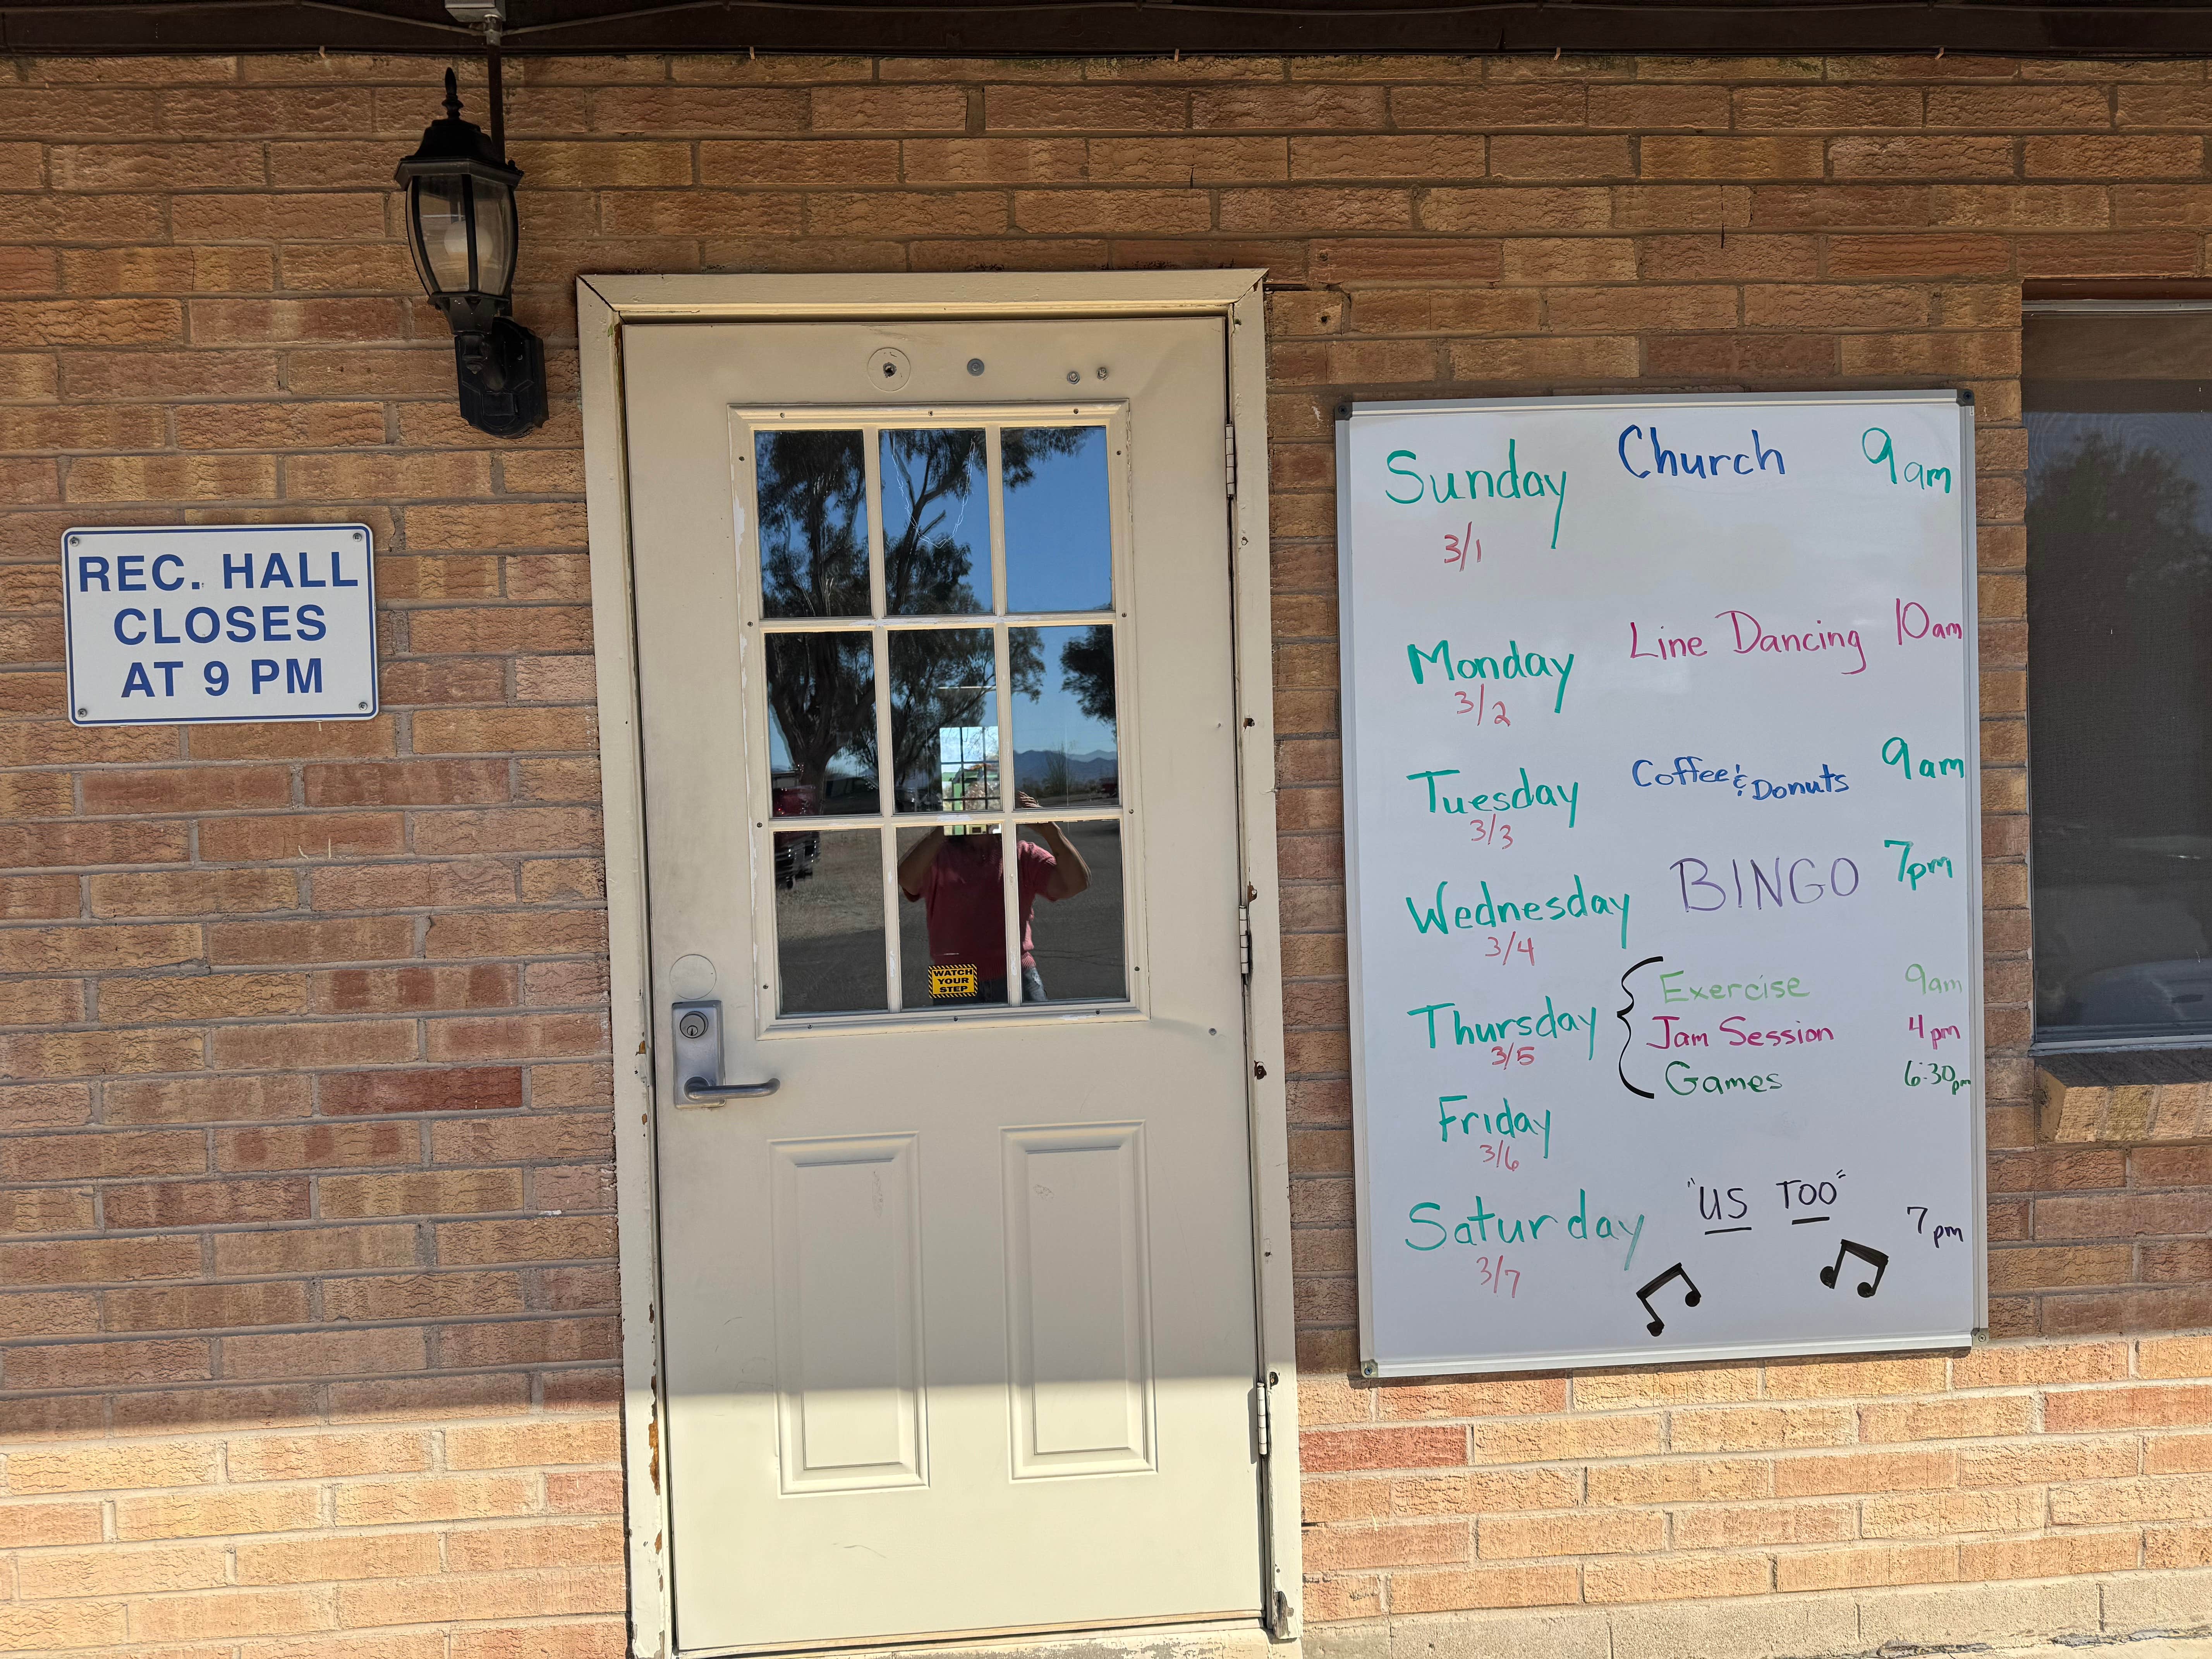 REC. HALL
CLOSES
AT 9 PM
WATCH
YOUR
STEP
Sunday Church 9am
3/1
Monday Line Dancing 10am
3/2
Tuesday Coffee & Donuts 9am
3/3
Wednesday BINGO 7pm
3/4
Thursday { Exercise 9am
Jam Session 4pm
3/5
Games 6:30pm
Friday
3/6
Saturday "US TOO" 7pm
3/7